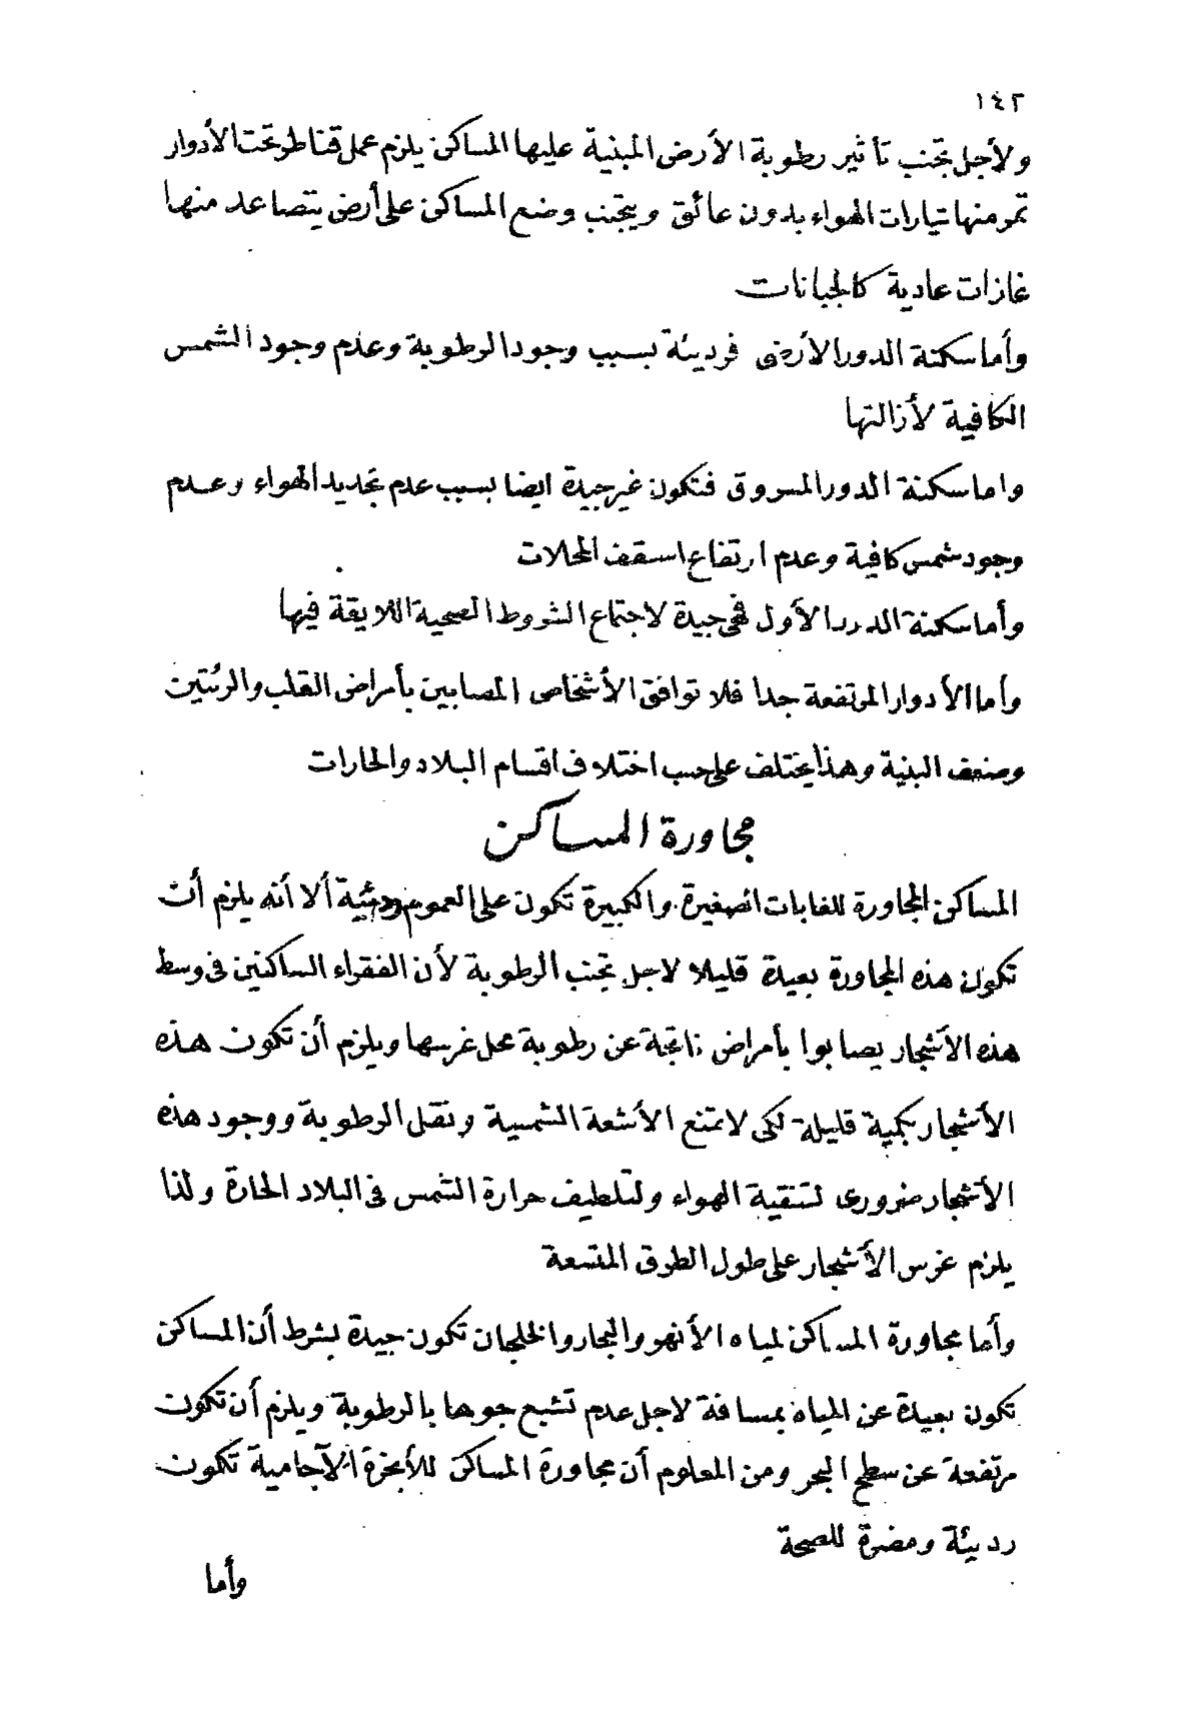 ١٤٢
ولأجل تجنب تأثير رطوبة الأرض المبنية عليها المساكن يلزم عمل قناطر تحت الأدوار
تمر منها تيارات الهواء بدون عائق ويتجنب وضع المساكن على أرض يتصاعد منها
غازات عادية كالجبانات
وأما سكنة الدور الأرضى فرديئة بسبب وجود الرطوبة وعدم وجود الشمس
الكافية لأزالتها
واما سكنة الدور المسروق فتكون غير جيدة ايضا بسبب عدم تجديد الهواء وعدم
وجود شمس كافية وعدم ارتفاع اسقف المحلات
وأما سكنة الدور الأول فهى جيدة لاجتماع الشروط الصحية اللايقة فيها
وأما الأدوار المرتفعة جدا فلا توافق الأشخاص المصابين بأمراض القلب والرئتين
وضعف البنية وهذا يختلف على حسب اختلاف اقسام البلاد والحارات
مجاورة المساكن
المساكن المجاورة للغابات الصغيرة والكبيرة تكون على العموم رديئة ألا أنه يلزم أن
تكون هذه المجاورة بعيدة قليلا لاجل تجنب الرطوبة لأن الفقراء الساكنين فى وسط
هذه الأشجار يصابوا بأمراض ناتجة عن رطوبة محل غرسها ويلزم أن تكون هذه
الأشجار بكمية قليلة لكى لا تمنع الأشعة الشمسية وتقل الرطوبة ووجود هذه
الأشجار ضرورى لتنقية الهواء ولتلطيف حرارة الشمس فى البلاد الحارة ولذا
يلزم غرس الأشجار على طول الطرق المتسعة
وأما مجاورة المساكن لمياه الأنهر والبحار والخلجان تكون جيدة بشرط أن المساكن
تكون بعيدة عن المياه بمسافة لاجل عدم تشبع جوها بالرطوبة ويلزم أن تكون
مرتفعة عن سطح البحر ومن المعلوم أن مجاورة المساكن للأبخرة الآجامية تكون
رديئة ومضرة للصحة
وأما